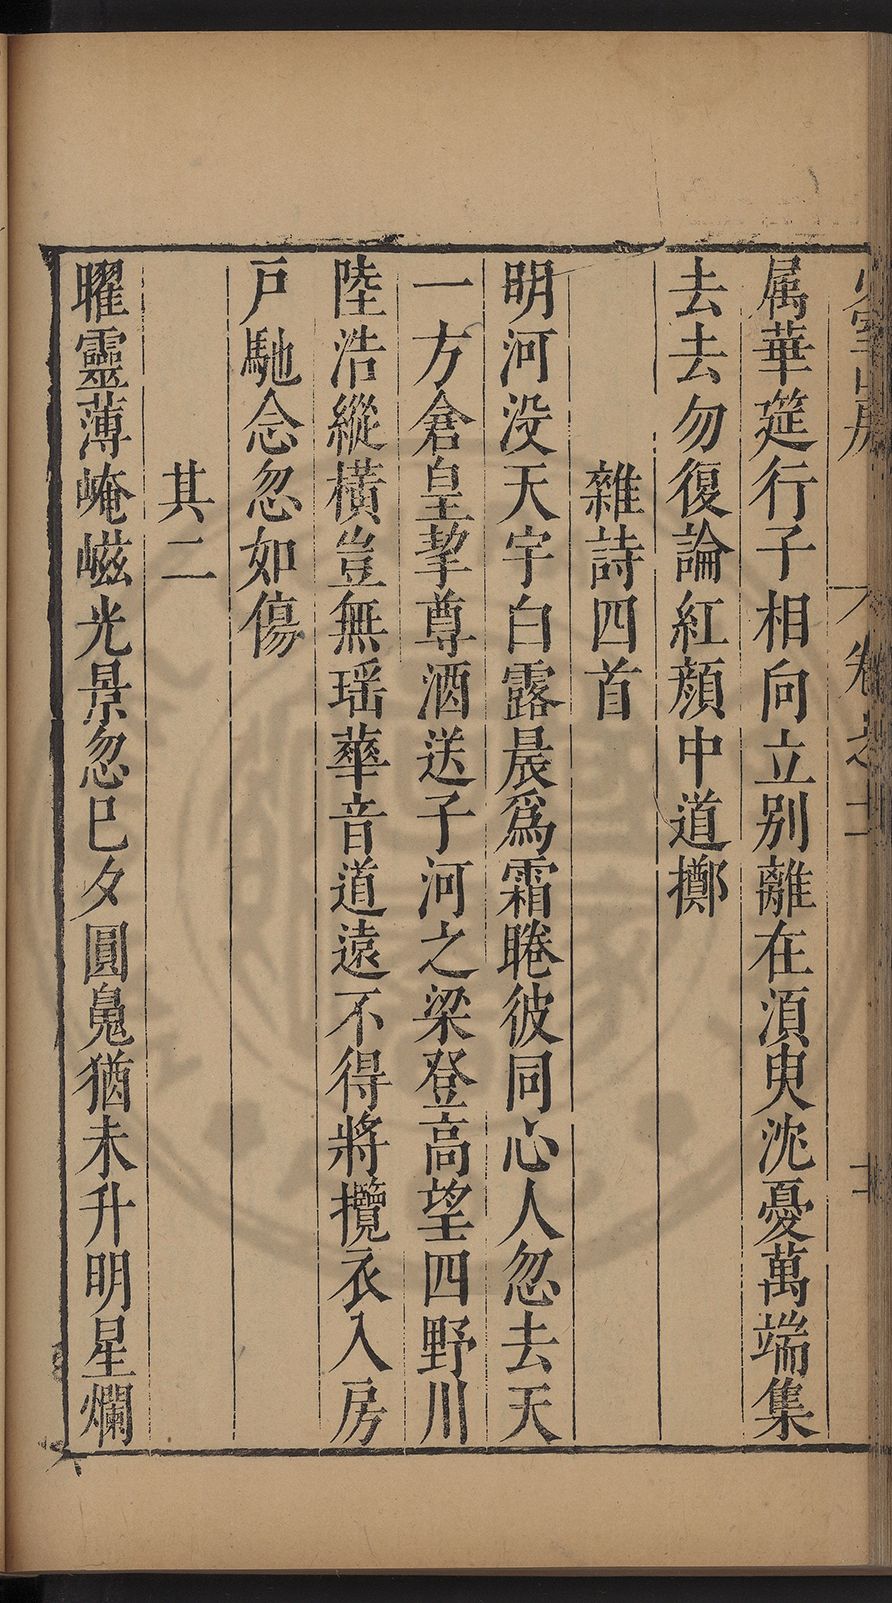 卷之十
属華筵行子相向立别離在湏臾沈憂萬端集
去去勿復論紅顔中道擲
雜詩四首
明河没天宇白露晨爲霜睠彼同心人忽去天
一方倉皇挈尊酒送子河之梁登高望四野川
陸浩縱橫豈無瑶華音道遠不得將攬衣入房
戸馳念忽如傷
其二
曜靈薄崦嵫光景忽巳夕圓鳬猶未升明星爛